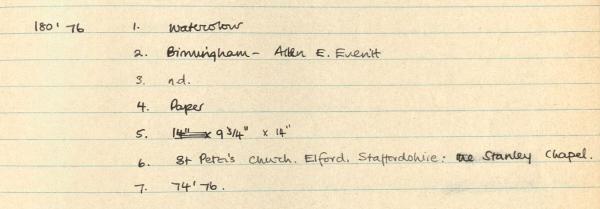 180'76 1. Watercolour
2. Birmingham - Allen E. Everitt
3. nd.
4. Paper
5. 14" x 9 3/4" x 14"
6. St Peter's Church. Elford. Staffordshire: the Stanley Chapel.
7. 74'76.